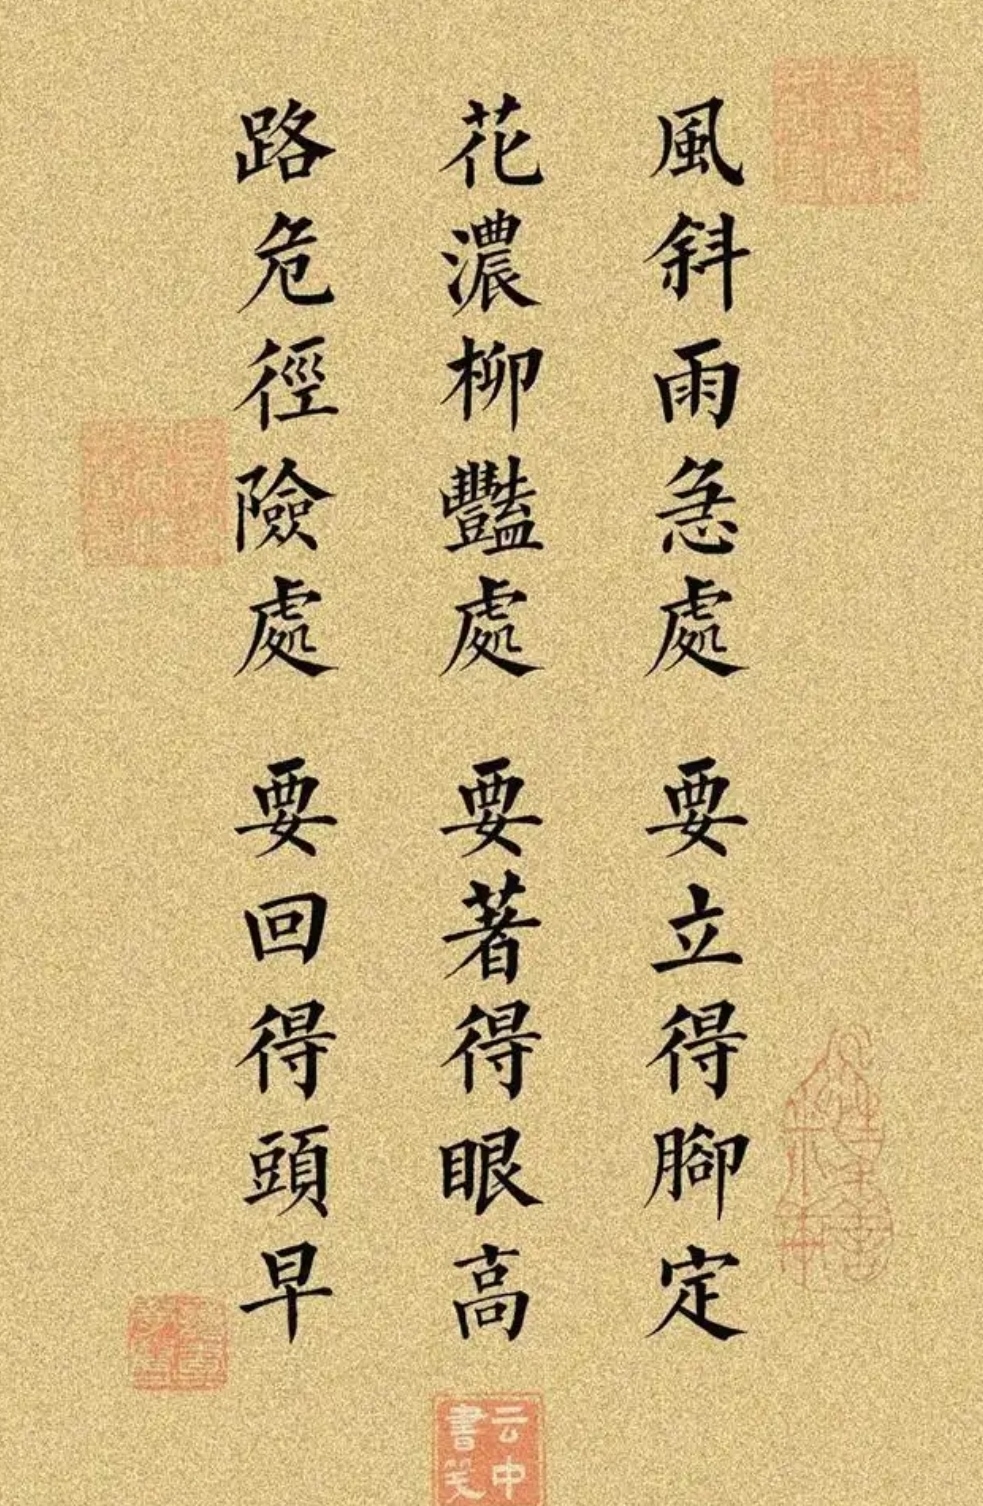 風斜雨急處 要立得腳定
花濃柳豔處 要著得眼高
路危徑險處 要回得頭早
云中書笺